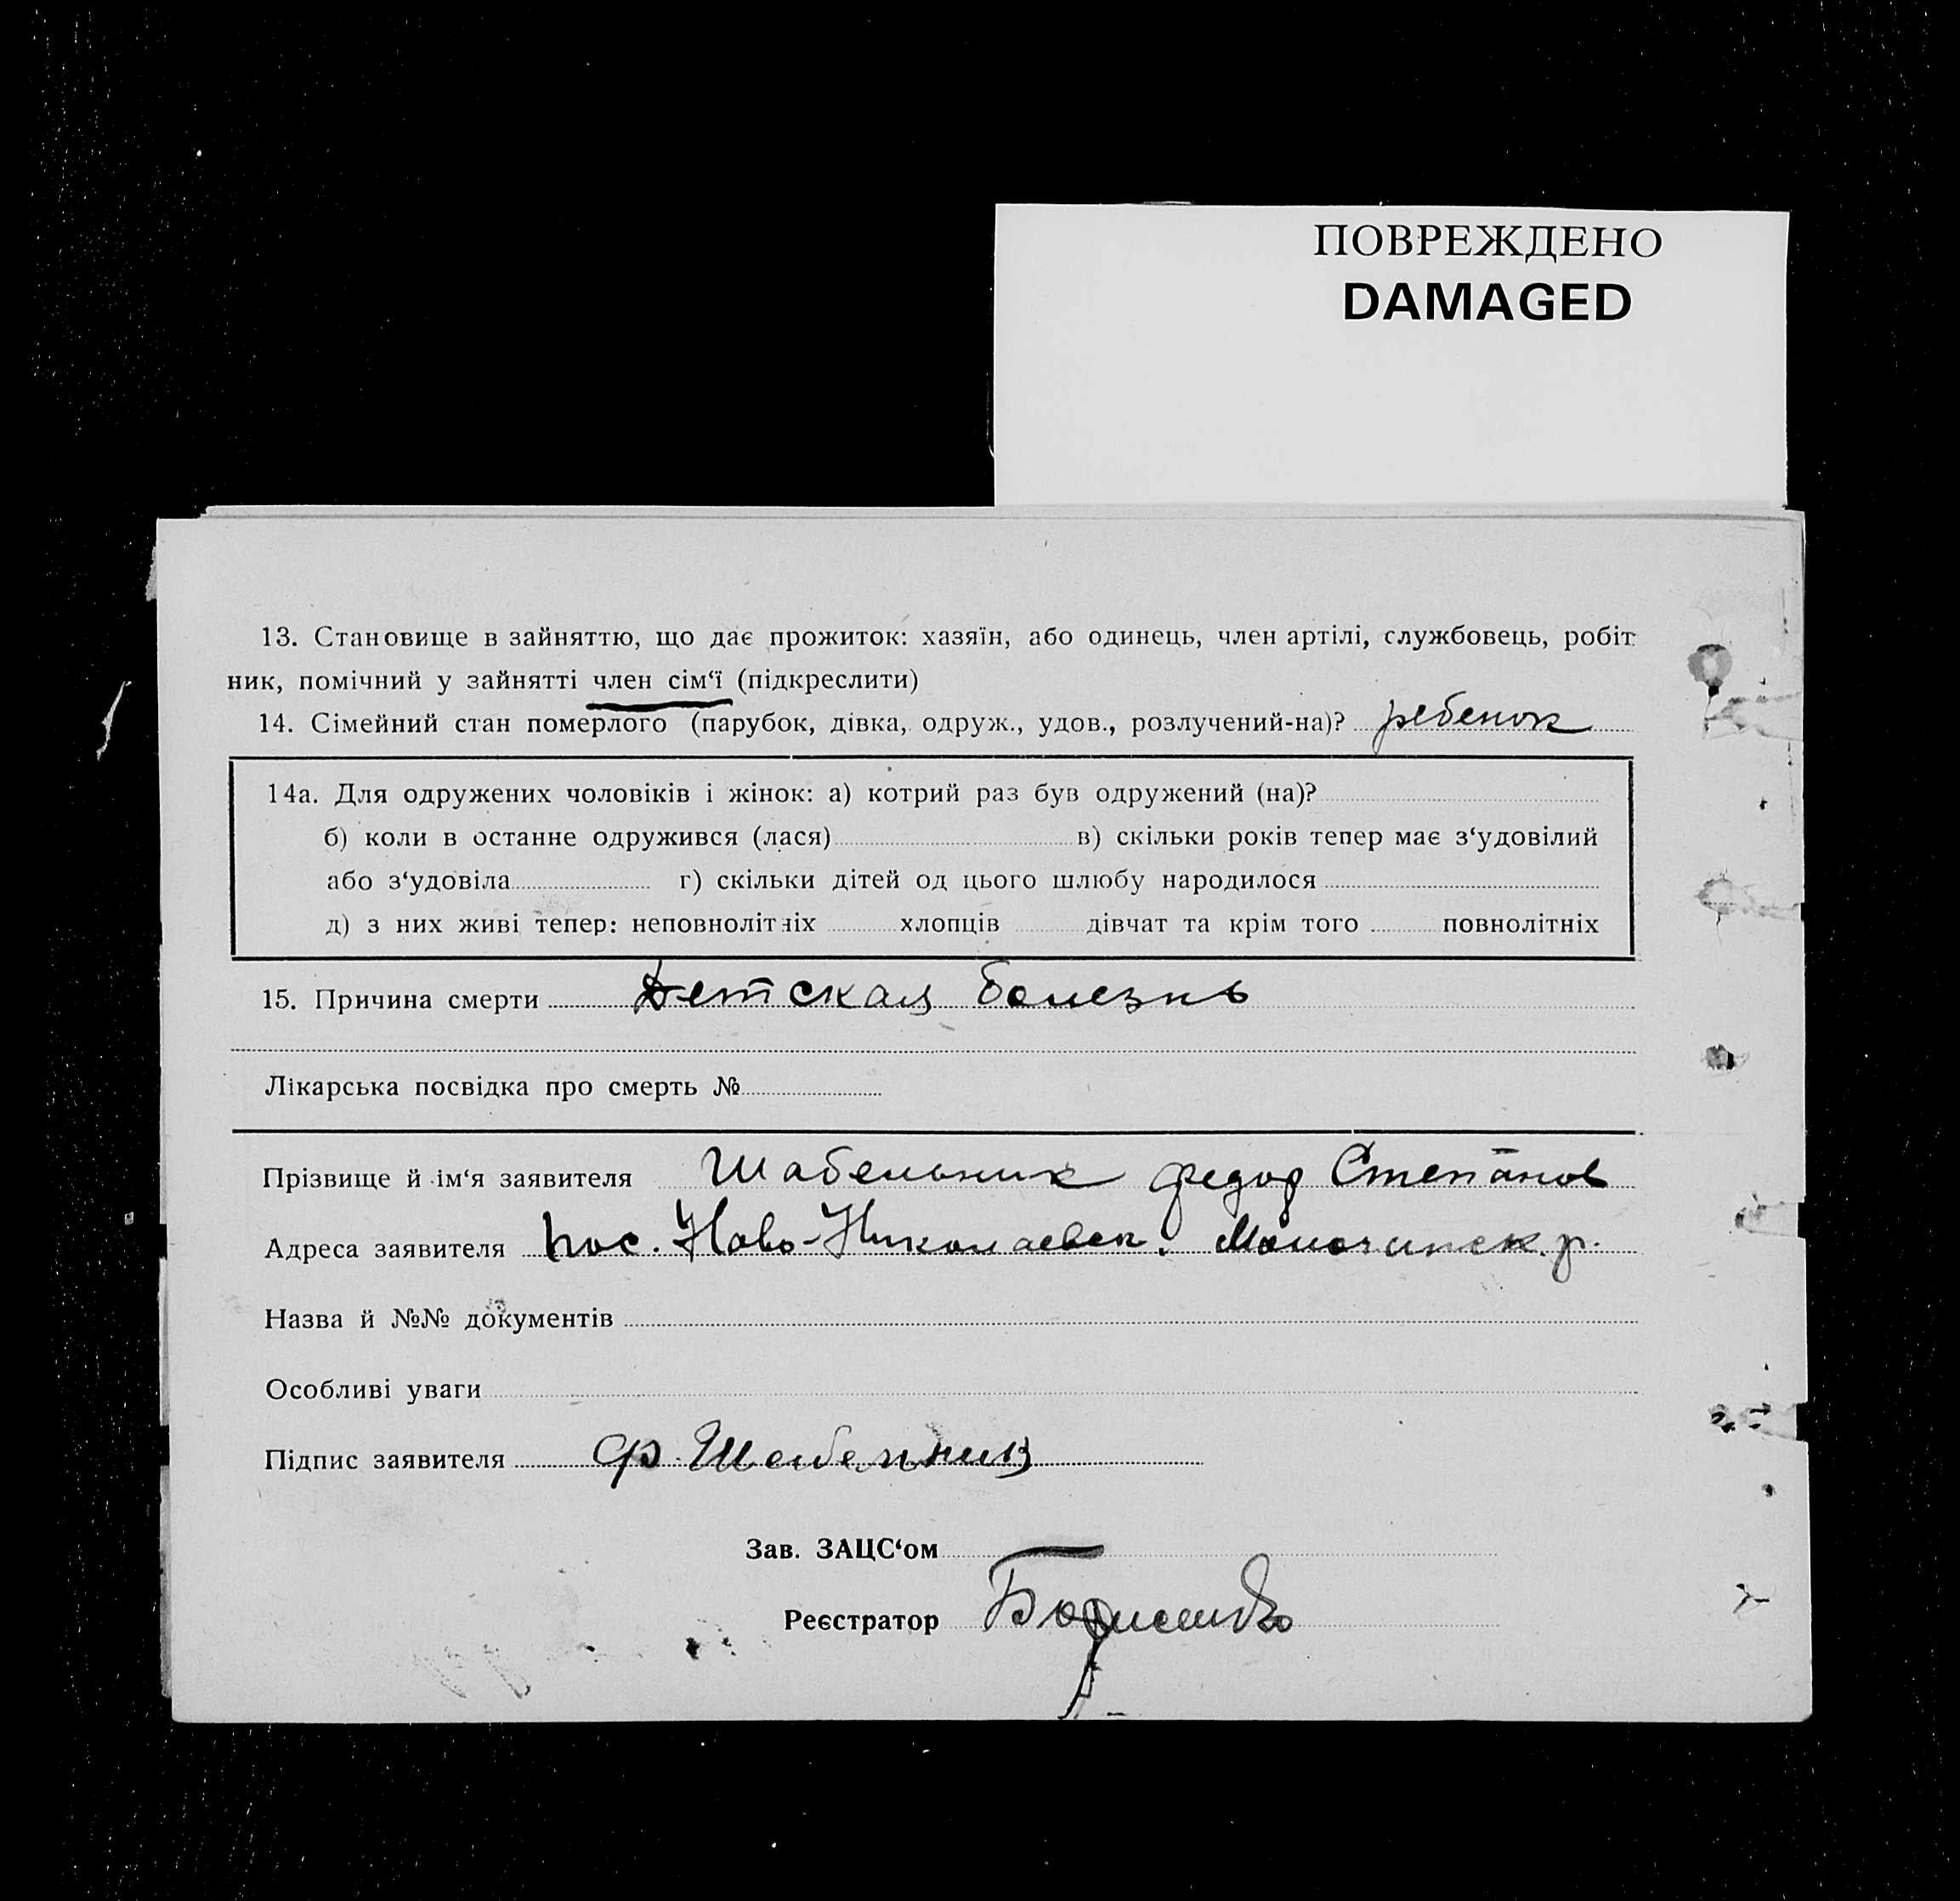 ПОВРЕЖДЕНО
DAMAGED
13. Становище в зайняттю, що дає прожиток: хазяїн, або одинець, член артілі, службовець, робіт
ник, помічний у зайнятті член сім‘ї (підкреслити)
14. Сімейний стан померлого (парубок, дівка, одруж., удов., розлучений-на)? ребенок
14а. Для одружених чоловіків і жінок: а) котрий раз був одружений (на)?
б) коли в останне одружився (лася) в) скільки років тепер має з‘удовілий
або з‘удовіла г) скільки дітей од цього шлюбу народилося
д) з них живі тепер: неповнолітніх хлопців дівчат та крім того повнолітніх
15. Причина смерти Детская болезнь
Лікарська посвідка про смерть №
Прізвище й ім‘я заявителя Шабельник Федор Степанов
Адреса заявителя пос. Ново-Николаевск. Молочинск. р.
Назва й №№ документів
Особливі уваги
Підпис заявителя Ф. Шабельник
Зав. ЗАЦС‘ом
Реєстратор Борисенко